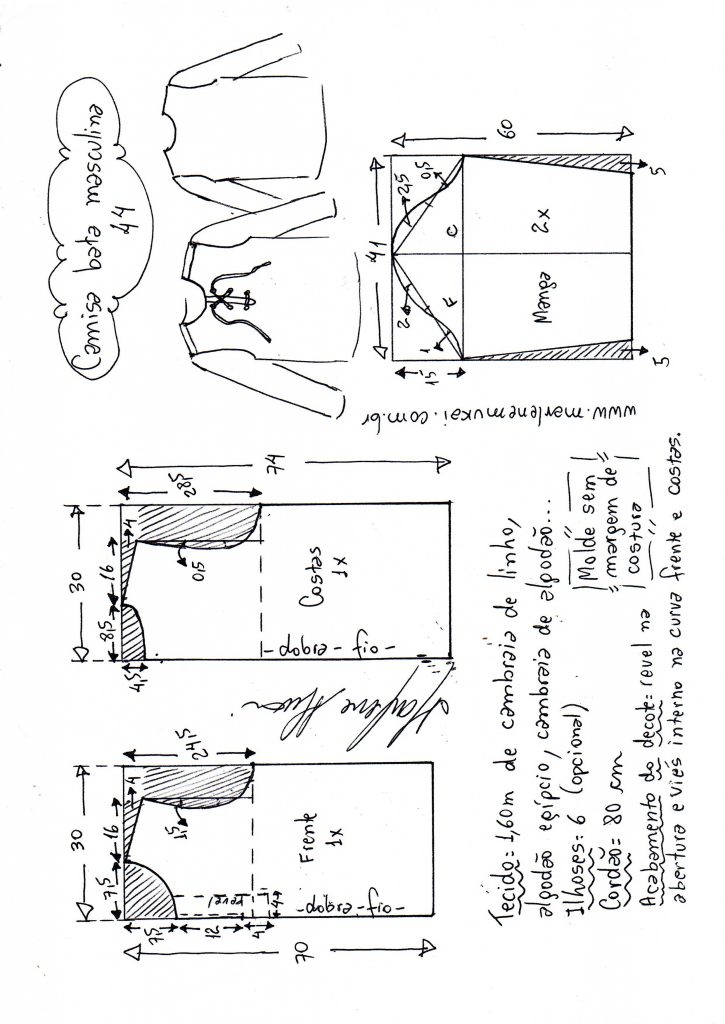 Camisa bata masculina
44
41
60
15
2
1
2,5
0,5
F
C
Manga
2x
5
5
www.marlenemukai.com.br
30
7,5
16
4
24,5
1,5
7,5
12
4
4
revel
Frente
1x
-dobra-fio-
70
30
8,5
16
4
28,5
0,5
4,5
Costas
1x
-dobra-fio-
74
Tecido= 1,60m de cambraia de linho,
algodão egípcio, cambraia de algodão...
Ilhoses= 6 (opcional)
Cordão= 80 cm
Acabamento do decote= revel na
abertura e viés interno na curva frente e costas.
Molde sem
margem de
costura